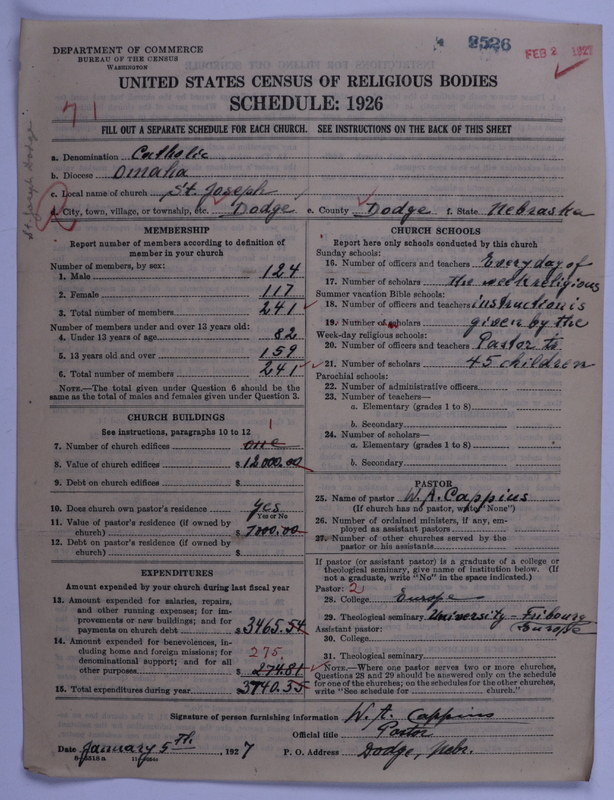 DEPARTMENT OF COMMERCE
BUREAU OF THE CENSUS
WASHINGTON
8526
FEB 2 1927
UNITED STATES CENSUS OF RELIGIOUS BODIES
SCHEDULE: 1926
71
FILL OUT A SEPARATE SCHEDULE FOR EACH CHURCH. SEE INSTRUCTIONS ON THE BACK OF THIS SHEET
St. Joseph Dodge
a. Denomination Catholic
b. Diocese Omaha
c. Local name of church St. Joseph
2
d. City, town, village, or township, etc. Dodge e. County Dodge f. State Nebraska
MEMBERSHIP
Report number of members according to definition of
member in your church
Number of members, by sex:
1. Male 124
2. Female 117
3. Total number of members 241
Number of members under and over 13 years old:
4. Under 13 years of age 82
5. 13 years old and over 159
6. Total number of members 241
NOTE.—The total given under Question 6 should be the
same as the total of males and females given under Question 3.
CHURCH BUILDINGS
See instructions, paragraphs 10 to 12
1
7. Number of church edifices one
8. Value of church edifices $12000.00
9. Debt on church edifices $
10. Does church own pastor's residence yes
Yes or No
11. Value of pastor's residence (if owned by
church) $7000.00
12. Debt on pastor's residence (if owned by
church) $
EXPENDITURES
Amount expended by your church during last fiscal year
13. Amount expended for salaries, repairs,
and other running expenses; for im-
provements or new buildings; and for
payments on church debt $3465.54
14. Amount expended for benevolences, in-
cluding home and foreign missions; for
denominational support; and for all
other purposes 275. $274.81
15. Total expenditures during year $3740.35
CHURCH SCHOOLS
Report here only schools conducted by this church
Sunday schools:
16. Number of officers and teachers Every day of
17. Number of scholars the week religious
Summer vacation Bible schools:
18. Number of officers and teachers instruction is
19. Number of scholars given by the
Week-day religious schools:
20. Number of officers and teachers Pastor to
21. Number of scholars 45 children
Parochial schools:
22. Number of administrative officers
23. Number of teachers—
a. Elementary (grades 1 to 8)
b. Secondary
24. Number of scholars—
a. Elementary (grades 1 to 8)
b. Secondary
PASTOR
25. Name of pastor W. A. Cappius
(If church has no pastor, write "None")
26. Number of ordained ministers, if any, em-
ployed as assistant pastors
27. Number of other churches served by the
pastor or his assistants
If pastor (or assistant pastor) is a graduate of a college or
theological seminary, give name of institution below. (If
not a graduate, write "No" in the space indicated.)
Pastor: 2
28. College Europe
29. Theological seminary University - Fribourg
Assistant pastor: Europe
30. College
31. Theological seminary
NOTE.—Where one pastor serves two or more churches,
Questions 28 and 29 should be answered only on the schedule
for one of the churches; on the schedules for the other churches,
write "See schedule for church."
Signature of person furnishing information W. A. Cappius
Official title Pastor
Date January 5th, 1927 P. O. Address Dodge, Nebr.